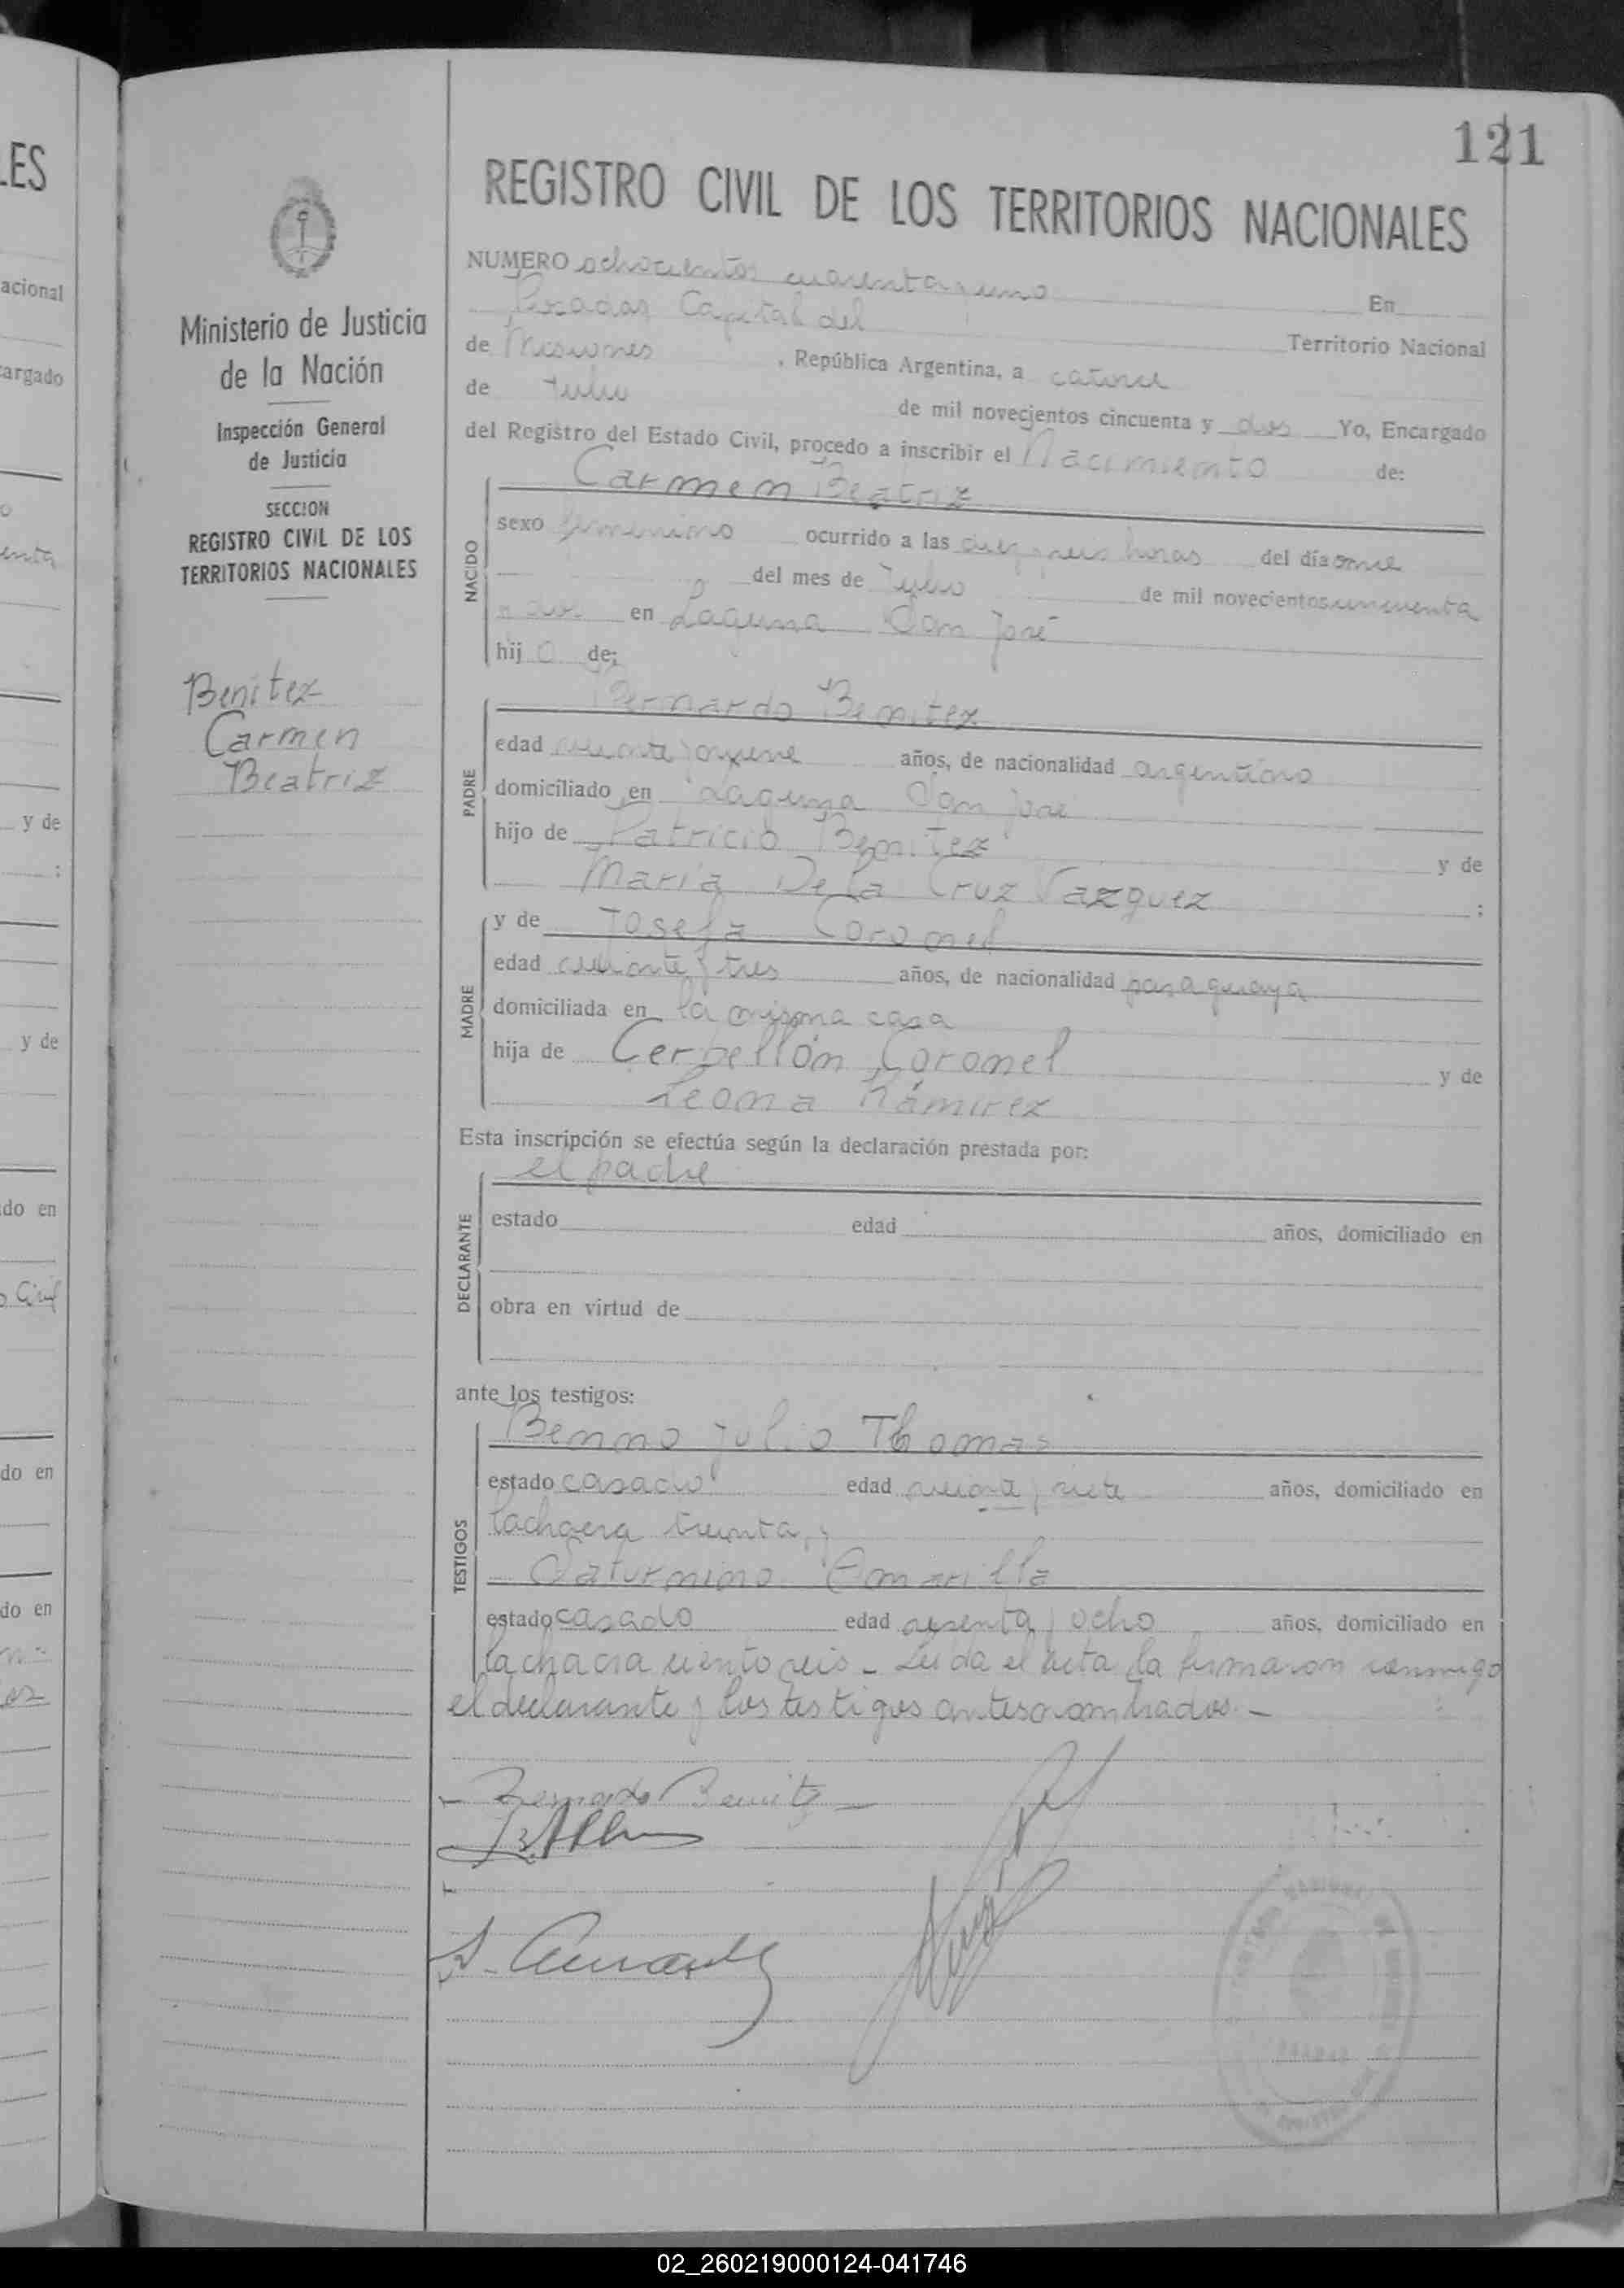 121
REGISTRO CIVIL DE LOS TERRITORIOS NACIONALES
Ministerio de Justicia
de la Nación
Inspección General
de Justicia
SECCION
REGISTRO CIVIL DE LOS
TERRITORIOS NACIONALES
Benitez
Carmen
Beatriz
NUMERO ochocientos cuarenta y uno En
Posadas Capital del Territorio Nacional
de Misiones , República Argentina, a catorce
de Julio de mil novecientos cincuenta y dos Yo, Encargado
del Registro del Estado Civil, procedo a inscribir el Nacimiento de:
NACIDO
Carmen Beatriz
sexo femenino ocurrido a las diez y seis horas del día once
del mes de Julio de mil novecientos cincuenta
y dos en Laguna San José
hij o de:
PADRE
Bernardo Benitez
edad y nueve años, de nacionalidad argentino
domiciliado en Laguna San José
hijo de Patricio Benitez y de
Maria De la Cruz Vazquez ;
MADRE
y de Josefa Coronel
edad y tres años, de nacionalidad paraguaya
domiciliada en la misma casa
hija de Cerbellón Coronel y de
Leona Rámirez
Esta inscripción se efectúa según la declaración prestada por:
DECLARANTE
el padre
estado edad años, domiciliado en
obra en virtud de
ante los testigos:
TESTIGOS
Benno Julio Thomas
estado casado edad y siete años, domiciliado en
la chacra treinta, y
Saturnino Amarilla
estado casado edad sesenta y ocho años, domiciliado en
la chacra ciento seis - Leida el acta la firmaron conmigo
el declarante y los testigos antes nombrados. -
- Bernardo Benitez -
02_260219000124-041746